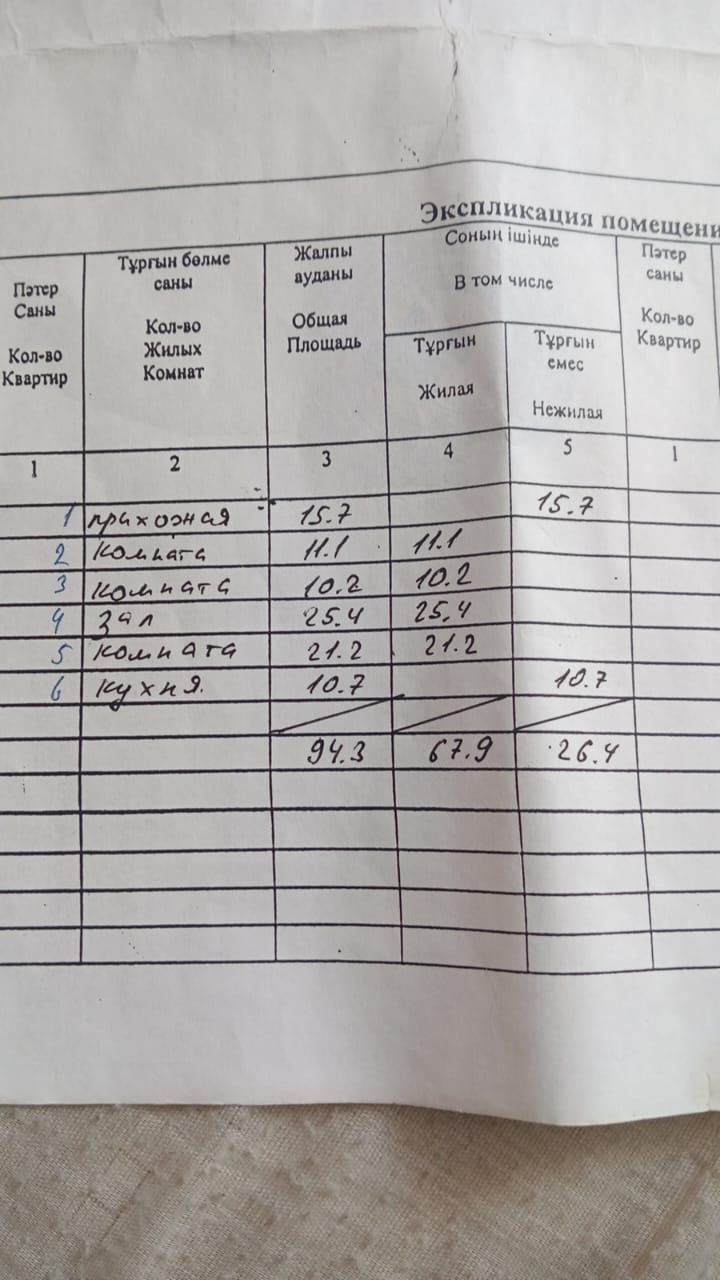 Экспликация помещени
Пәтер Саны
Кол-во Квартир
Тұрғын бөлме саны
Кол-во Жилых Комнат
Жалпы ауданы
Общая Площадь
Соның ішінде
В том числе
Тұрғын
Жилая
Тұрғын емес
Нежилая
Пәтер саны
Кол-во Квартир
1 2 3 4 5 1
1 прихожная 15.7 15.7
2 комната 11.1 11.1
3 комната 10.2 10.2
4 зал 25.4 25.4
5 комната 21.2 21.2
6 кухня. 10.7 10.7
94.3 67.9 26.4